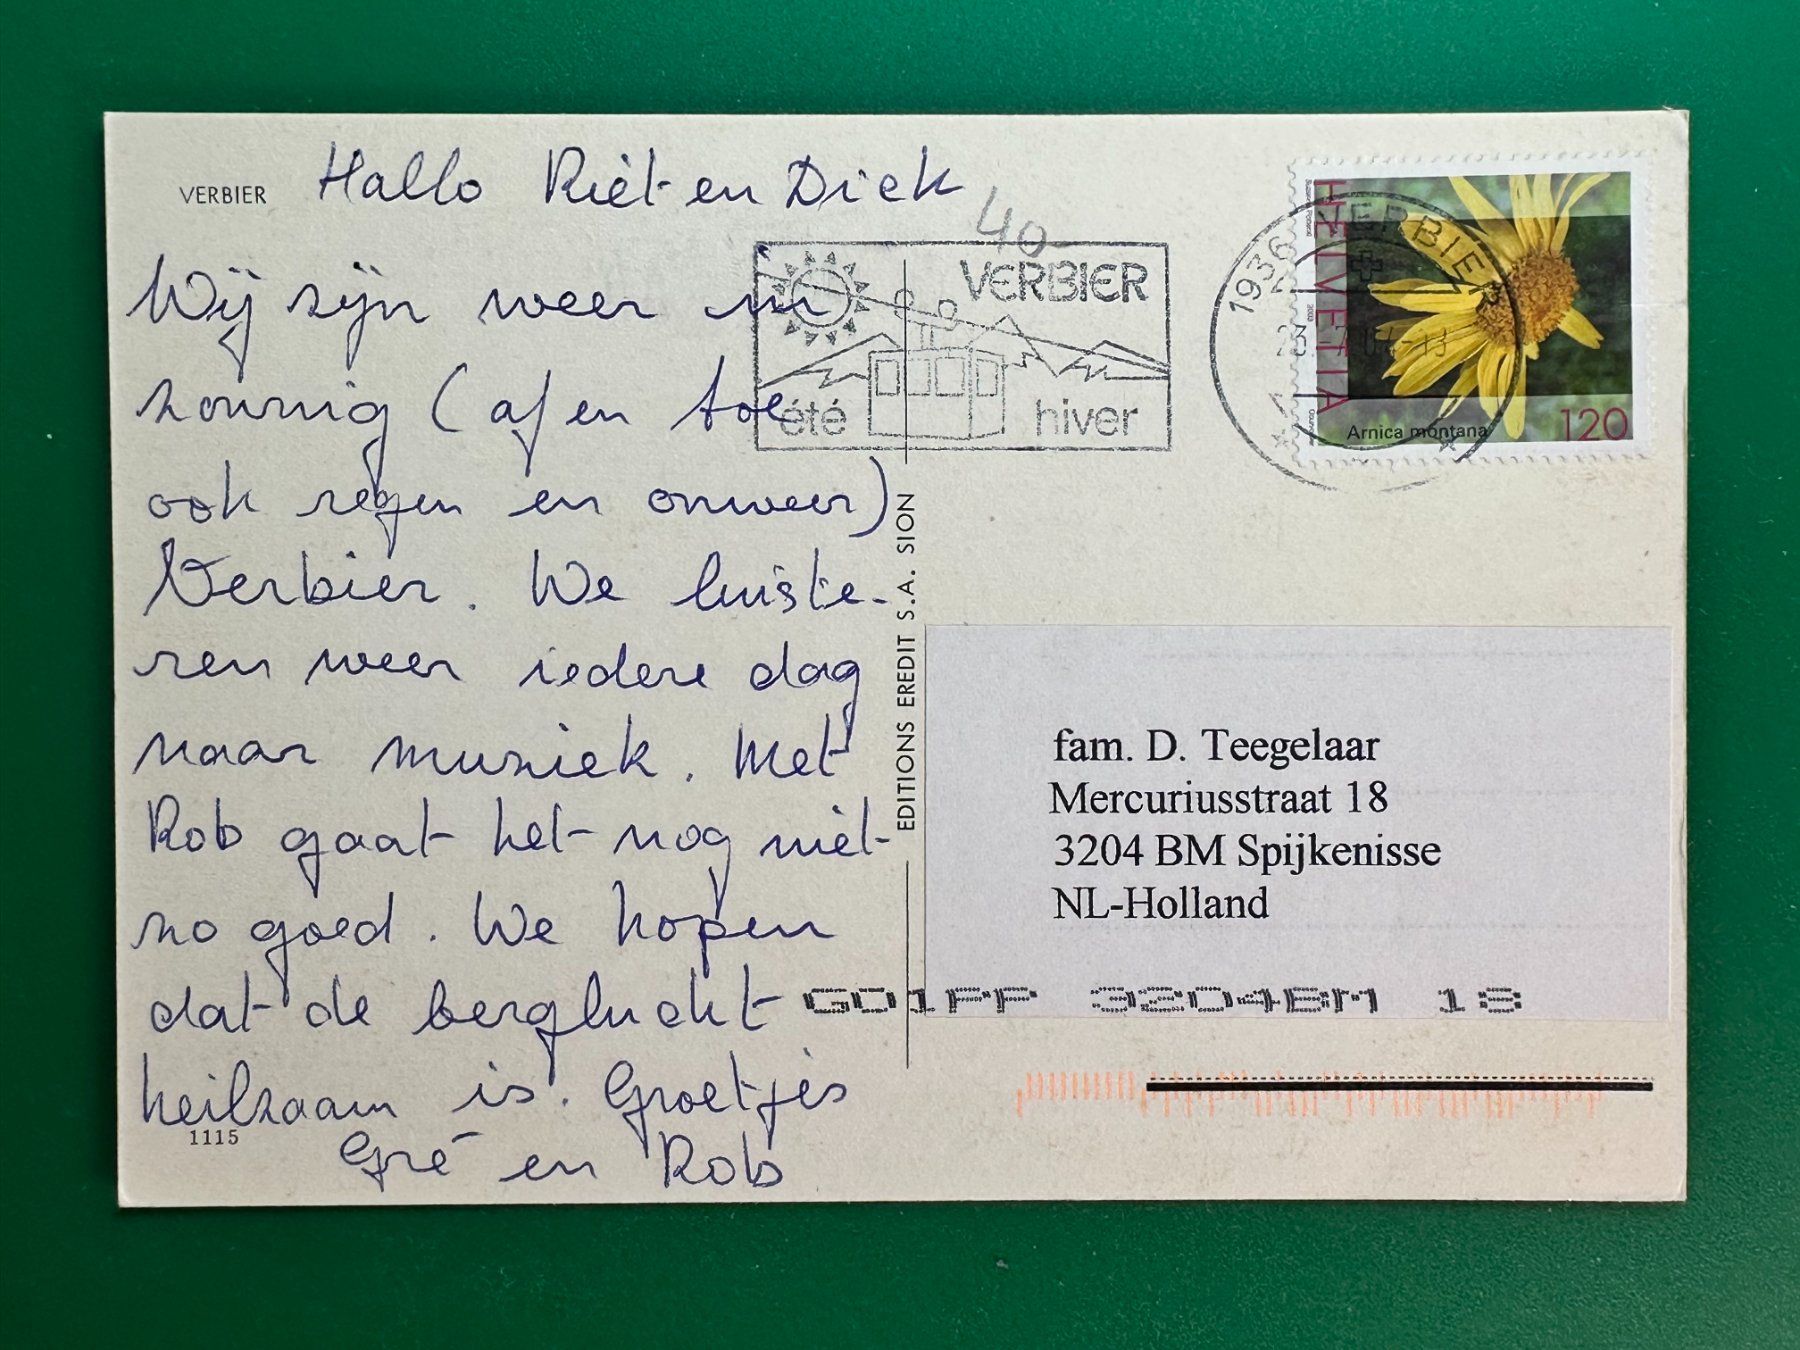 VERBIER
Hallo Riet en Dick
Wij zijn weer in
zonnig (af en toe
ook regen en onweer)
Verbier. We luiste-
ren weer iedere dag
naar muziek. Met
Rob gaat het nog niet
zo goed. We hopen
dat de berglucht
heilzaam is. Groetjes
Gré en Rob
1115
40
VERBIER
été hiver
1936 VERBIER
HELVETIA
2003
Arnica montana
120
EDITIONS EREDIT S.A. SION
fam. D. Teegelaar
Mercuriusstraat 18
3204 BM Spijkenisse
NL-Holland
GO1PP 3204BM 18